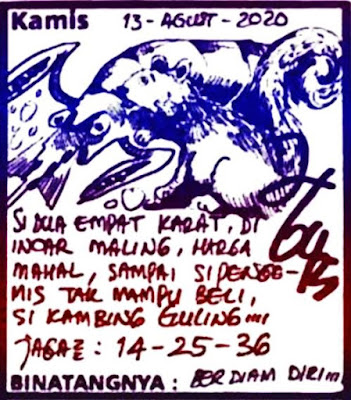 Kamis 13-AGUST-2020
SI DUA EMPAT KARAT, DI
INCAR MALING, HARGA
MAHAL, SAMPAI SI PENGE-
MIS TAK MAMPU BELI,
SI KAMBING GULING mi
JAGA2 : 14-25-36
BINATANGNYA : BERDIAM DIRIM